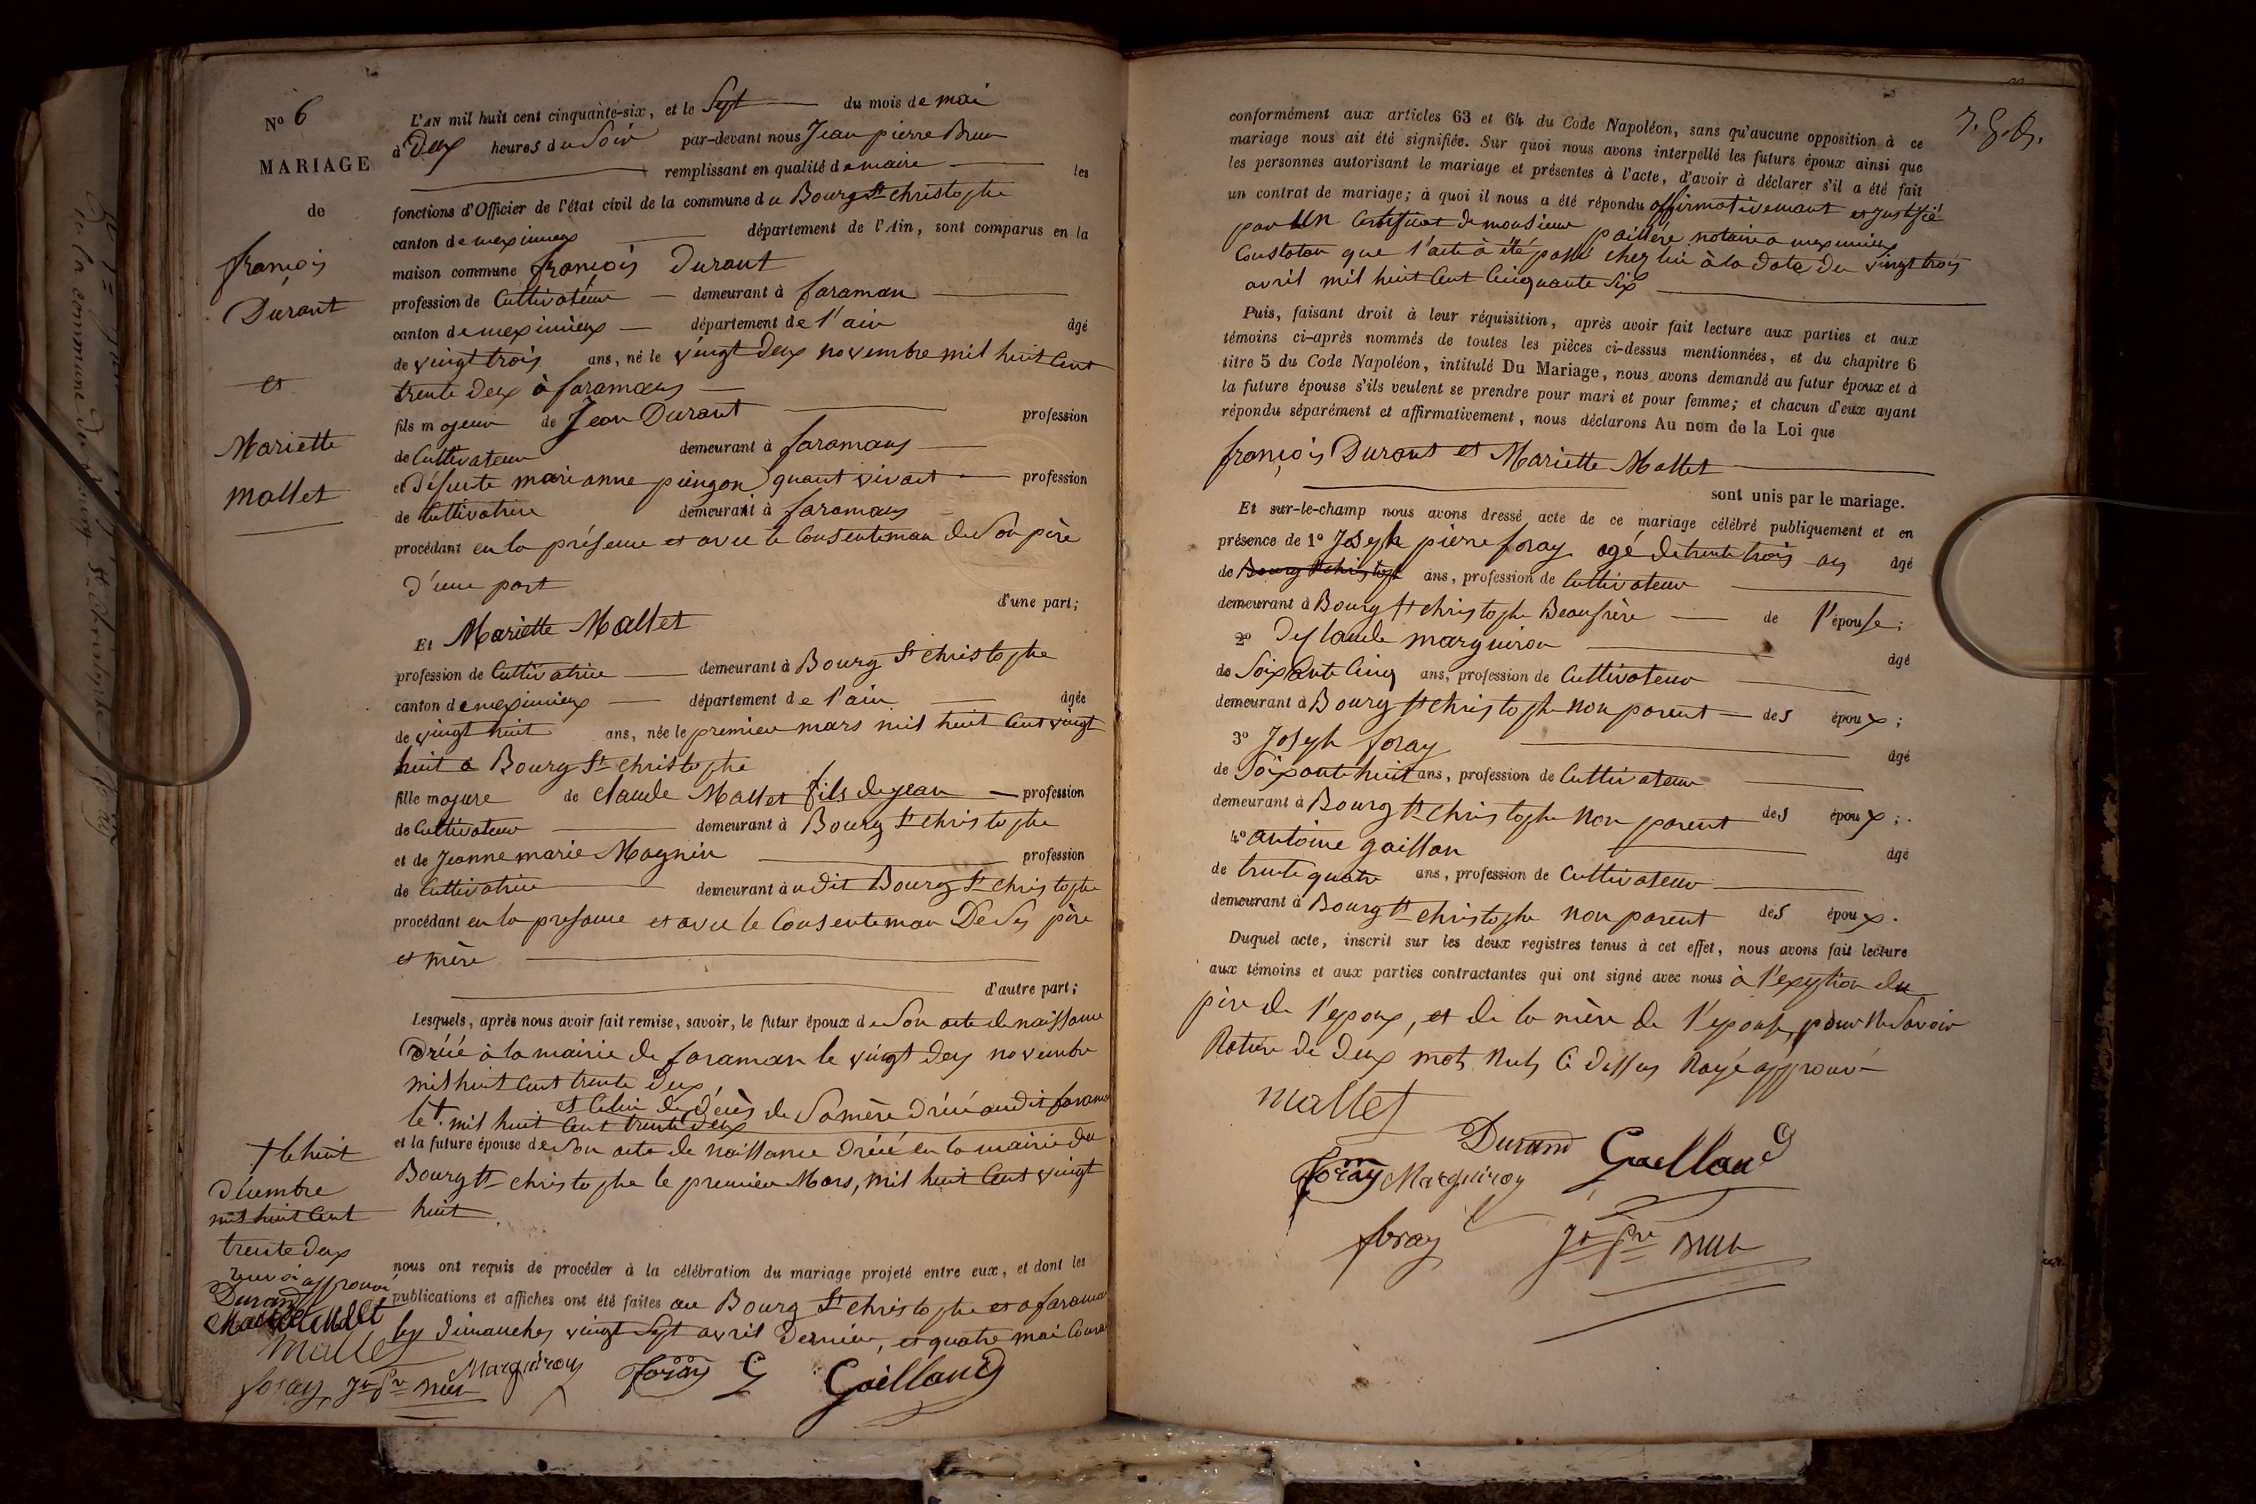 Nº 6
MARIAGE
de
françois
Durant
et
Mariette
mallet
L'AN mil huit cent cinquante-six, et le Sept du mois de mai
à Deux heures du Soir par-devant nous Jean pierre Brun
remplissant en qualité de maire les
fonctions d'Officier de l'état civil de la commune du Bourg St christophe
canton de meximieux département de l'Ain, sont comparus en la
maison commune françois Durant
profession de Cultivateur demeurant à faraman
canton de meximieux département de l'ain âgé
de vingt trois ans, né le vingt deux novembre mil huit Cent
trente deux à faramans
fils majeur de Jean Durant profession
de Cultivateur demeurant à faramans
et défunte marianne pingon quant vivait profession
de Cultivatrice demeurait à faramans
procédant en la présence et avec le Consenteman de Son père
d'une part
d'une part;
Et Mariette Mallet
profession de Cultivatrice demeurant à Bourg St christophe
canton de meximieux département de l'ain âgée
de vingt huit ans, née le premier mars mil huit Cent vingt
huit à Bourg St christophe
fille majure de claude Mallet fils de jean profession
de Cultivateur demeurant à Bourg St christophe
et de Jeanne marie Magnin profession
de Cultivatrice demeurant à udit Bourg St christophe
procédant en la presance et avec le Consenteman De Ses père
et mère
d'autre part;
Lesquels, après nous avoir fait remise, savoir, le futur époux de Son acte de naissance
à la mairie de faraman le vingt deux novembre
mil huit Cent trente deux,
et Celui de décès de Sa mère audit faramans
le † mil huit Cent trente deux
et la future épouse de Son acte de naissance en la mairie du
Bourg St christophe le premier Mars, mil huit Cent vingt
huit
† le huit
décembre
mil huit Cent
trente deux
renvoi approuvé
Durand
Mallet
nous ont requis de procéder à la célébration du mariage projeté entre eux, et dont les
publications et affiches ont été faites au Bourg St christophe et a faraman
les dimanches vingt Sept avril dernier, et quatre mai Courant
mallet
Marguiron foray G Gailland
foray Jn Pre Brun
J. G. B.
conformément aux articles 63 et 64 du Code Napoléon, sans qu'aucune opposition à ce
mariage nous ait été signifiée. Sur quoi nous avons interpellé les futurs époux ainsi que
les personnes autorisant le mariage et présentes à l'acte, d'avoir à déclarer s'il a été fait
un contrat de mariage; à quoi il nous a été répondu affirmativemant et Justifié
par Un Certificat de monsieur paillere notaire a meximieux
Constatan que l'acte à été passé chez lui à la date du vingt trois
avril mil huit Cent Cinquante Six
Puis, faisant droit à leur réquisition, après avoir fait lecture aux parties et aux
témoins ci-après nommés de toutes les pièces ci-dessus mentionnées, et du chapitre 6
titre 5 du Code Napoléon, intitulé Du Mariage, nous avons demandé au futur époux et à
la future épouse s'ils veulent se prendre pour mari et pour femme; et chacun d'eux ayant
répondu séparément et affirmativement, nous déclarons Au nom de la Loi que
françois Durant et Mariette Mallet
sont unis par le mariage.
Et sur-le-champ nous avons dressé acte de ce mariage célébré publiquement et en
présence de 1º Joseph pierre foray agé de trente trois ans âgé
de Bourg St christophe ans, profession de Cultivateur
demeurant à Bourg St christophe Beaufrère de l'épouse;
2º claude marguiron âgé
de Soixante Cinq ans, profession de Cultivateur
demeurant à Bourg St christophe non parent des époux;
3º Joseph foray âgé
de Soixante huit ans, profession de Cultivateur
demeurant à Bourg St christophe non parent des époux;
4º antoine gaillan âgé
de trente quatre ans, profession de Cultivateur
demeurant à Bourg St christophe non parent des époux.
Duquel acte, inscrit sur les deux registres tenus à cet effet, nous avons fait lecture
aux témoins et aux parties contractantes qui ont signé avec nous à l'exeption du
père de l'epoux, et de la mère de l'epouse, pour ne Savoir
Rature de deux mots nuls Ci dessus Rayé approuvé
mallet
Durand Gailland
foray Marguiron
foray Jn Pre Brun